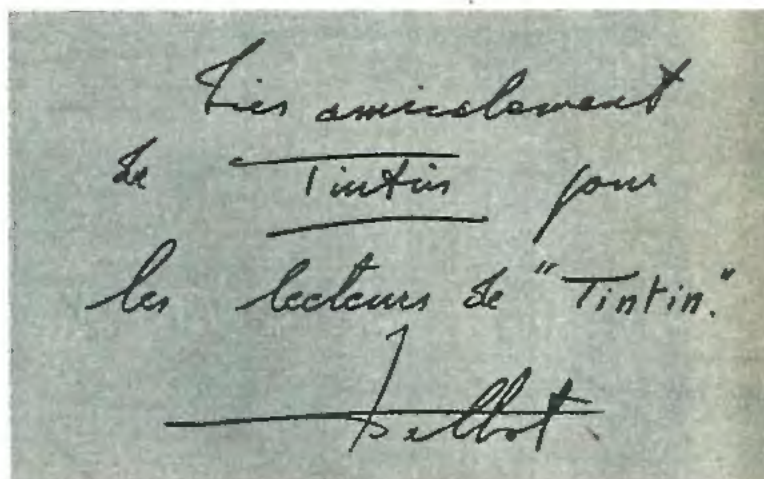 Très amicalement
de Tintin pour
les lecteurs de "Tintin."
Talbot